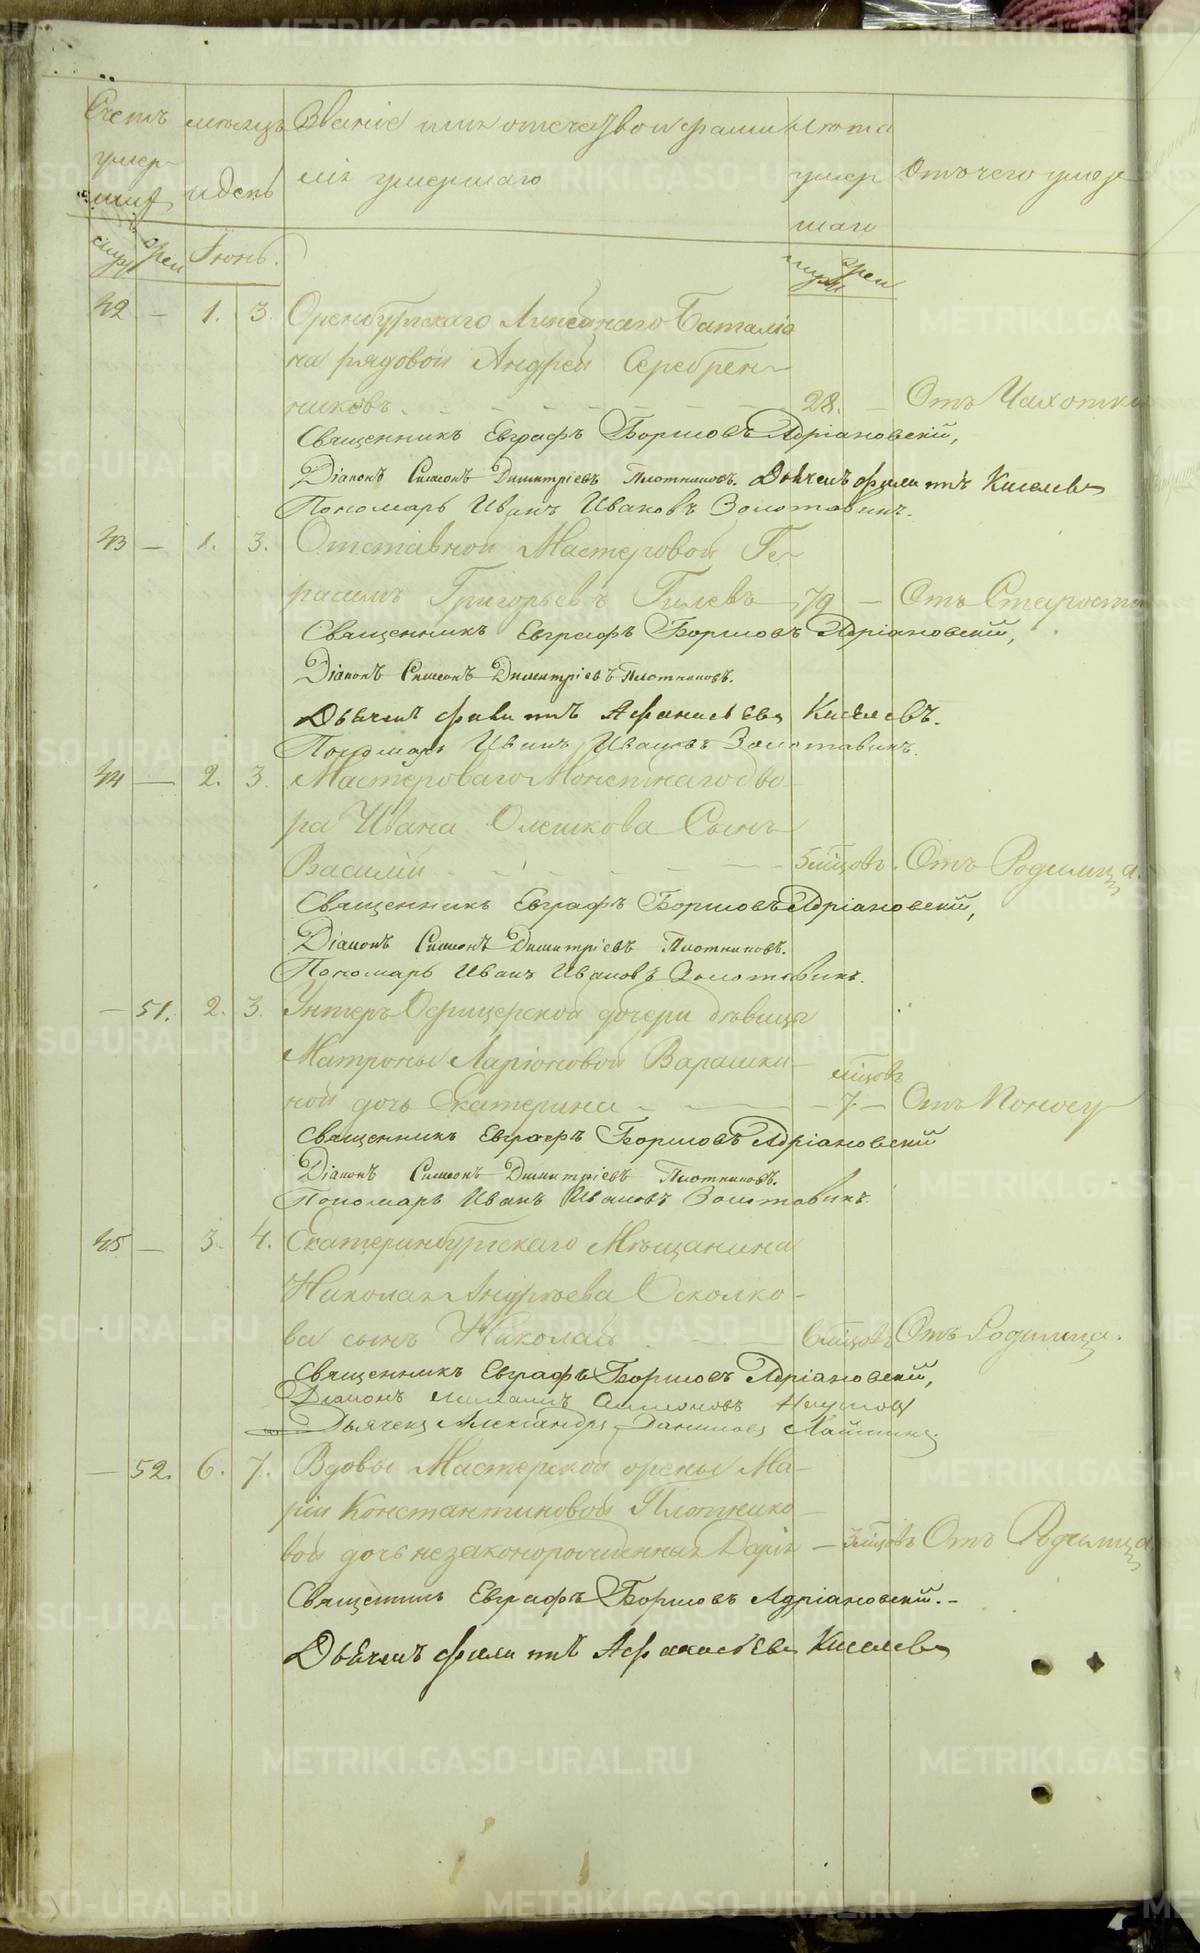 Счетъ мѣсяцъ Званіе имя отечество и фамил Лѣта
умер- лія умершаго умер Отъ чего умре
шихъ и день шаго
муж жен Іюнь. муж жен
42 — 1. 3. Оренбургскаго Линейнаго Баталіо
на рядовой Андрей Серебрен-
никовъ. 28. — Отъ Чахотки
Священникъ Евграфъ Борисовъ Адріановскій,
Діаконъ Симеонъ Димитріевъ Плотниковъ. Дьячекъ филиппъ Киселевъ
Пономарь Иванъ Ивановъ Золотавинъ.
43 — 1. 3. Отставной Мастеровой Ге-
расимъ Григорьевъ Гилевъ 79 — Отъ Старости
Священникъ Евграфъ Борисовъ Адріановскій,
Діаконъ Симеонъ Димитріевъ Плотниковъ.
Дьячекъ филиппъ Афанасьевъ Киселевъ.
Пономарь Иванъ Ивановъ Золотавинъ.
44 — 2. 3. Мастероваго Монетнаго дво-
ра Ивана Олешкова Сынъ
Василій 5 мѣцовъ. Отъ Родимца.
Священникъ Евграфъ Борисовъ Адріановскій,
Діаконъ Симеонъ Димитріевъ Плотниковъ.
Пономарь Иванъ Ивановъ Золотавинъ.
— 51. 2. 3. Унтеръ Офицерской дочери дѣвицы
Матроны Ларіоновой Варашки- мѣцовъ
ной дочь Екатерина — 7 — Отъ Поносу
Священникъ Евграфъ Борисовъ Адріановскій
Діаконъ Симеонъ Димитріевъ Плотниковъ.
Пономарь Иванъ Ивановъ Золотавинъ
45 — 3. 4. Екатеринбургскаго Мѣщанина
Николая Андреева Осколко-
ва сынъ Николай 6 мѣцовъ Отъ Родимца.
Священникъ Евграфъ Борисовъ Адріановскій,
Діаконъ Симеоновъ
Дьячекъ Александръ Даниловъ
— 52. 6. 7. Вдовы Мастерской жены Ма-
ріи Константиновой Плотнико-
вой дочь незаконорожденная Дарья — 3 мѣцовъ Отъ Родимца
Священникъ Евграфъ Борисовъ Адріановскій. -
Дьячекъ филиппъ Афанасьевъ Киселевъ
METRIKI.GASO-URAL.RU